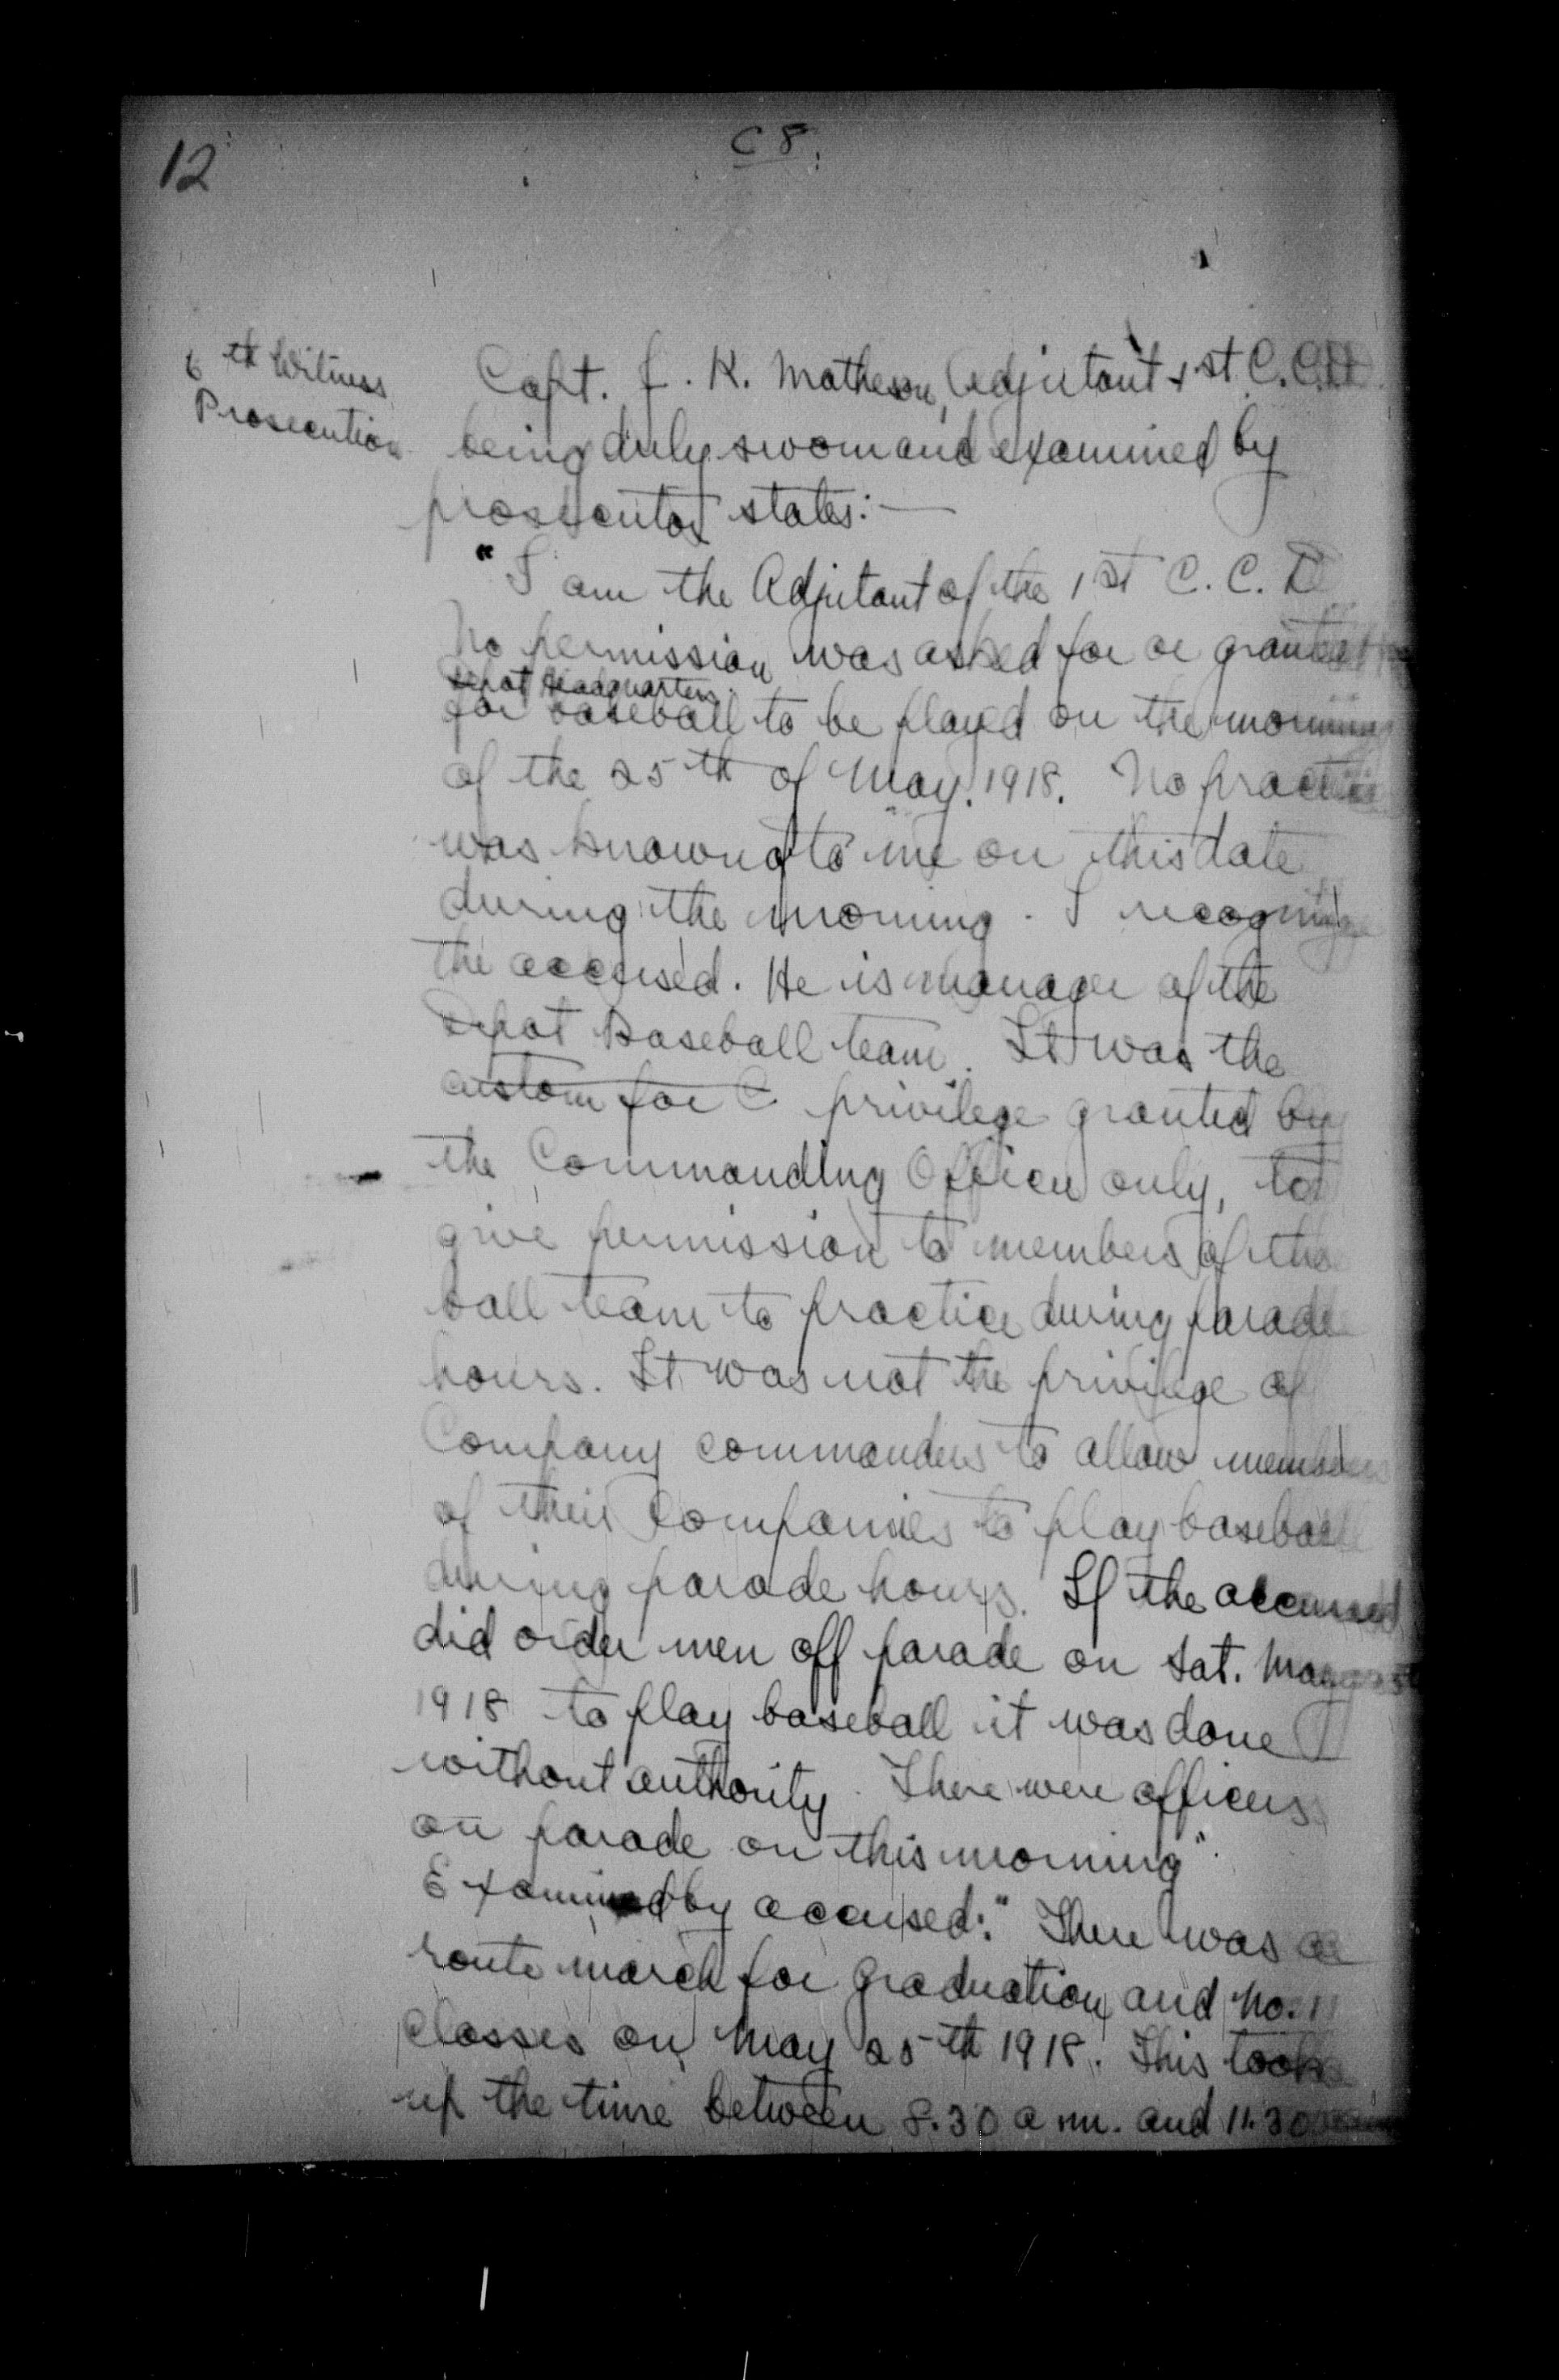 12
C 8.
6th Witness
Prosecution
Capt. J. K. Matheson, Adjutant 1st C.C.D.
being duly sworn and examined by
prosecutor states:—
"I am the Adjutant of the 1st C. C. D
No permission was asked for or granted by
Depot Headquarters
for baseball to be played on the morning
of the 25th of May. 1918. No practice
was known of to me on this date
during the morning. I recognize
the accused. He is manager of the
Depot Baseball team. It was the
custom for C privilege granted by
the Commanding Officer only, to
give permission to members of the
ball team to practice during parade
hours. It was not the privilege of
Company commanders to allow members
of their Companies to play baseball
during parade hours. If the accused
did order men off parade on Sat. May 25th
1918 to play baseball it was done
without authority. There were officers
on parade on this morning".
Examined by accused: "There was a
route march for graduation and No. 11
classes on May 25th 1918. This took
up the time between 8.30 a.m. and 11.30